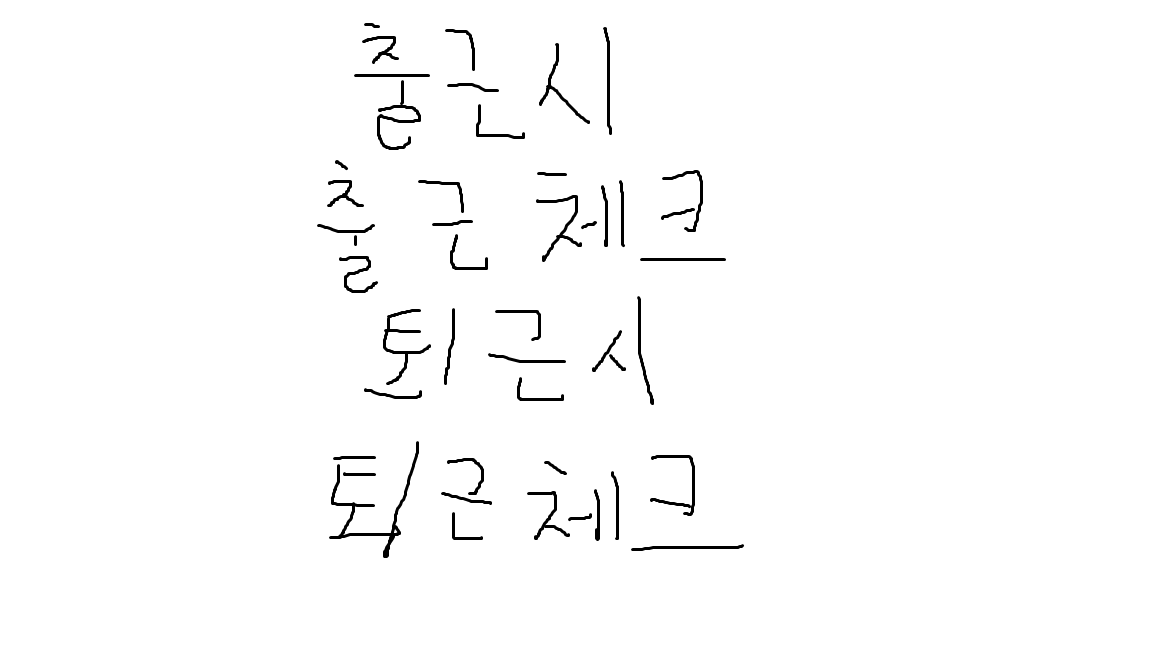 출근시
출근체크
퇴근시
퇴근체크